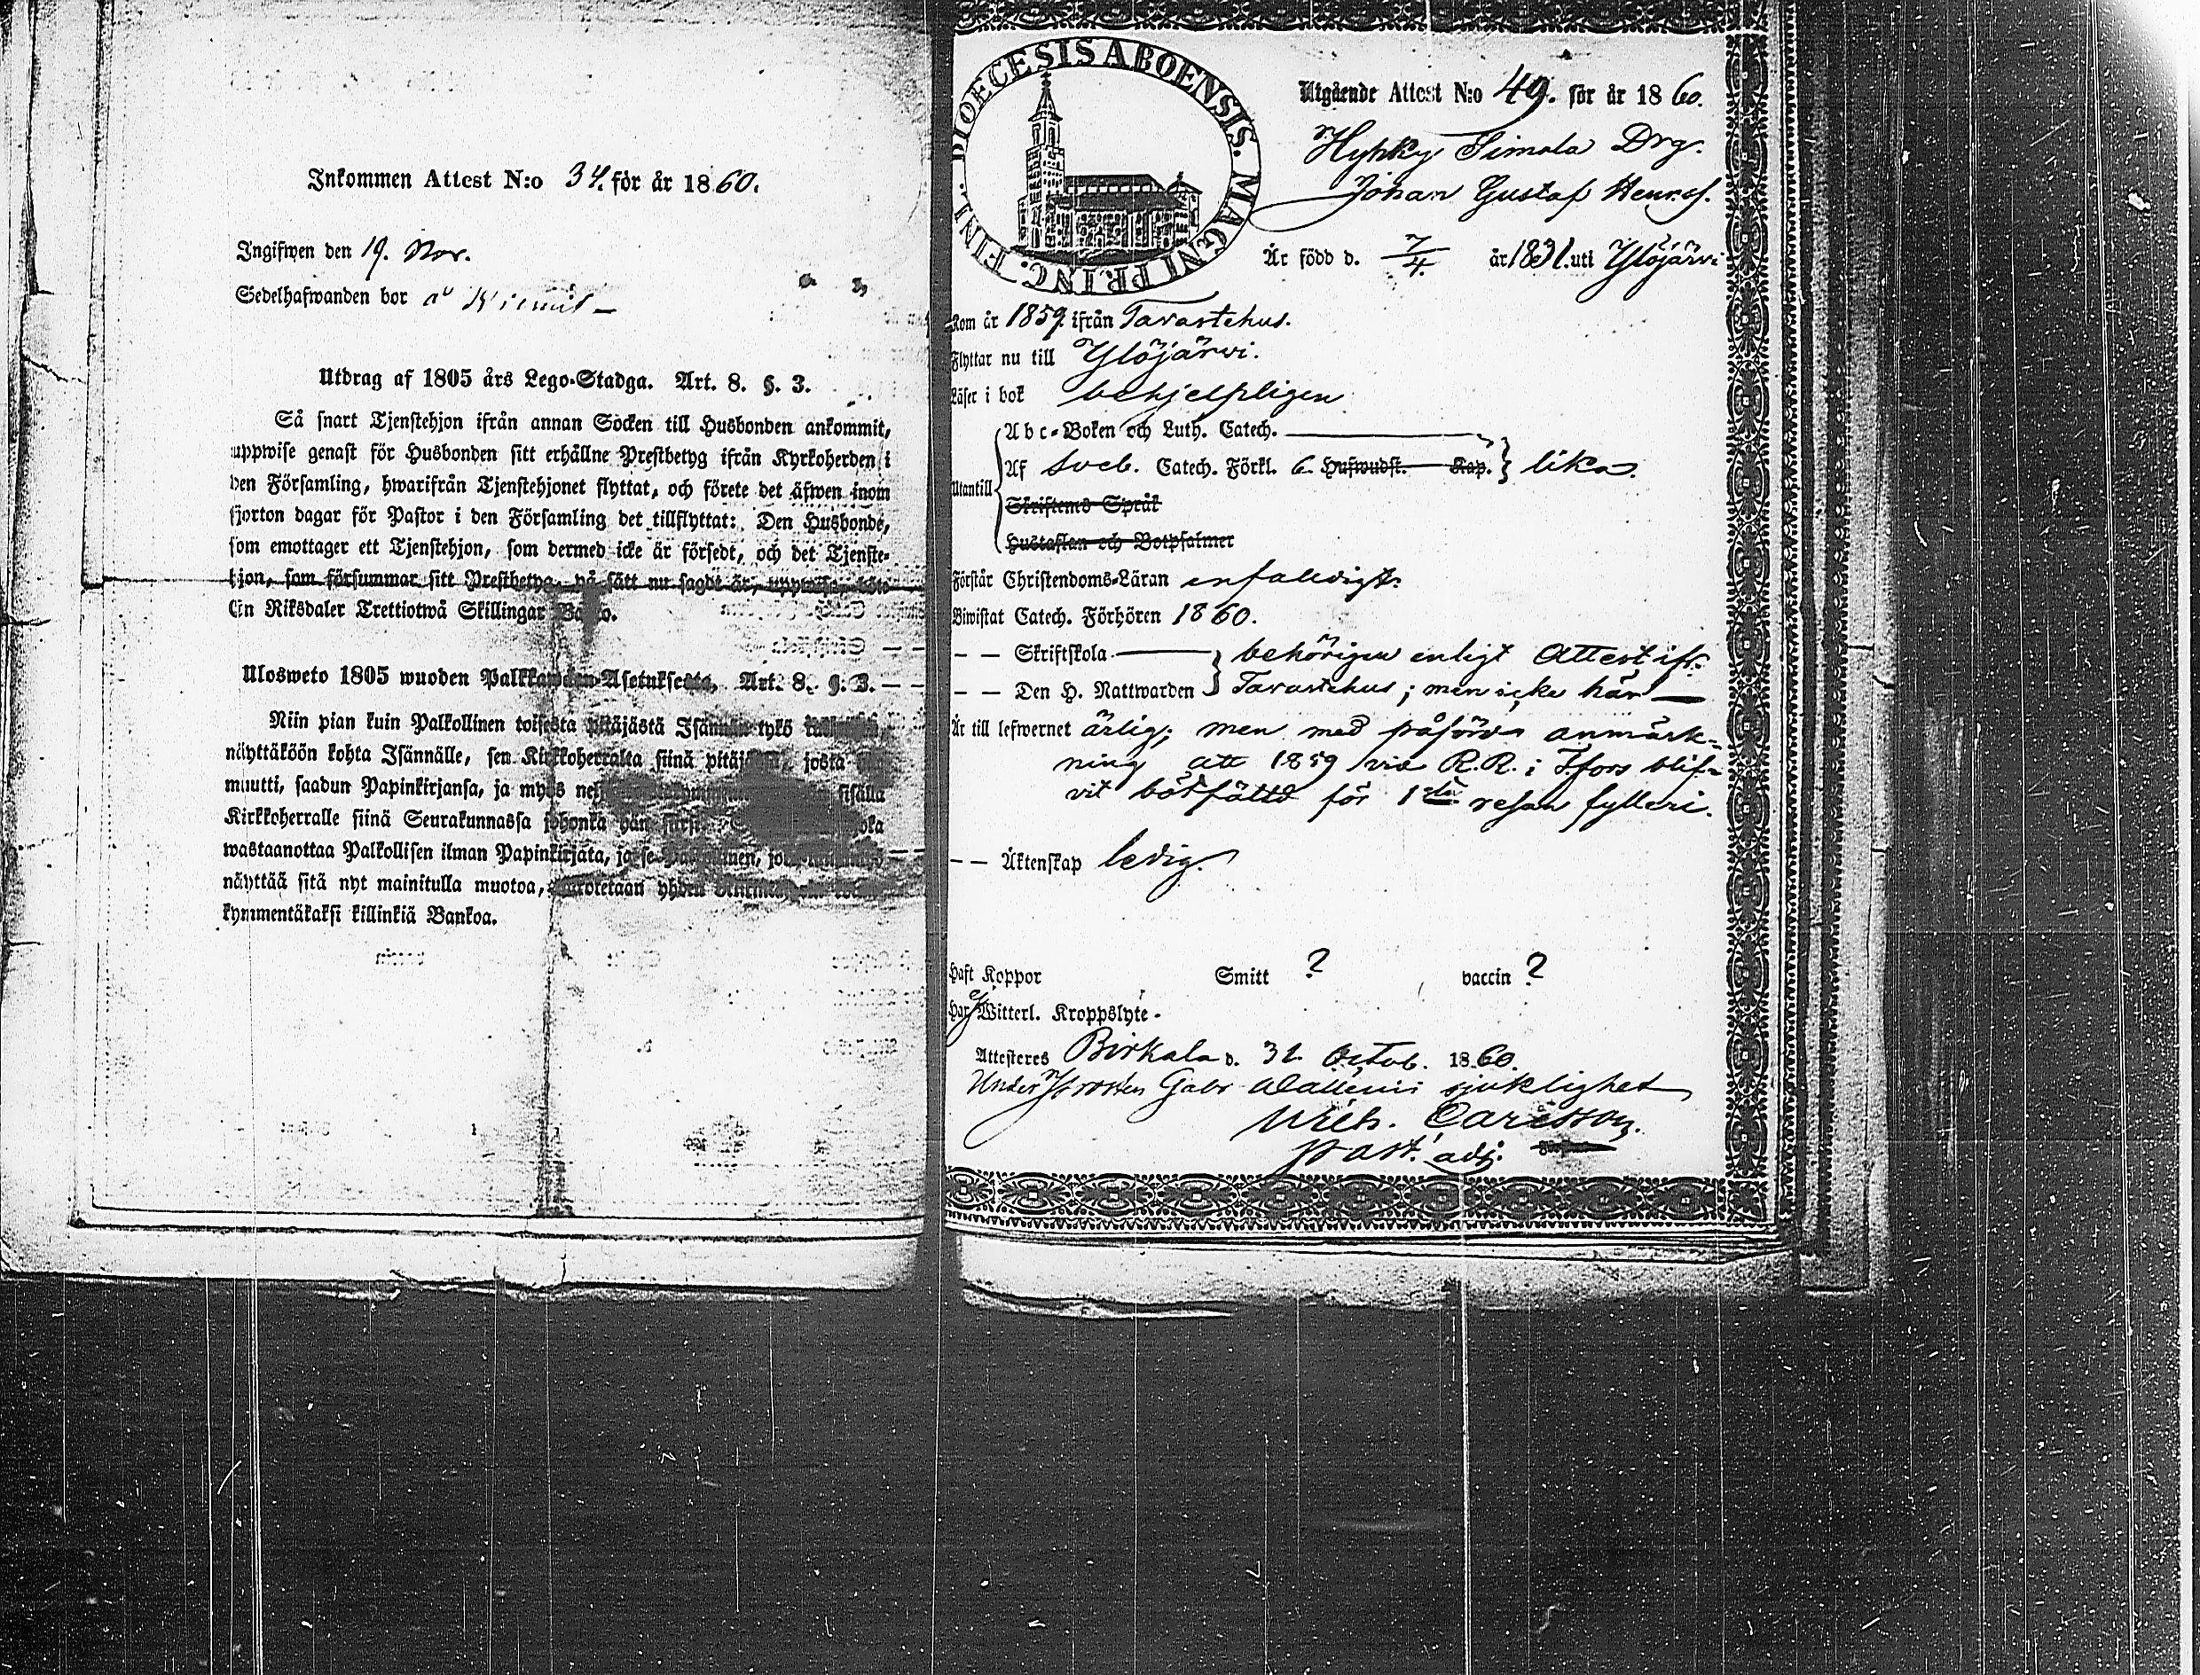 Inkommen Attest N:o 34. för år 1860.
Ingifwen den 19. Nov.
Sedelhafwanden bor å
Utdrag af 1805 års Lego-Stadga. Art. 8. §. 3.
Så snart Tjenstehjon ifrån annan Socken till Husbonden ankommit,
uppwise genast för Husbonden sitt erhållne Prestbetyg ifrån Kyrkoherden i
den Församling, hwarifrån Tjenstehjonet flyttat, och förete det äfwen inom
fjorton dagar för Pastor i den Församling det tillflyttat: Den Husbonde,
som emottager ett Tjenstehjon, som dermed icke är försedt, och det Tjenste-
hjon, som försummar sitt Prestbetyg, på sätt nu sagdt är, uppwisa, böte
En Riksdaler Trettiotwå Skillingar Banko.
Ulosweto 1805 wuoden Palkkawäen-Asetuksesta, Art. 8. §. 3.
Niin pian kuin Palkollinen toisesta pitäjästä Isännän tykö
näyttäköön kohta Isännälle, sen Kirkkoherralta siinä pitäjässä, josta
muutti, saadun Papinkirjansa, ja myös sisällä
Kirkkoherralle siinä Seurakunnassa johonka hän joka
wastaanottaa Palkollisen ilman Papinkirjata, ja se
näyttää sitä nyt mainitulla muotoa, yhden
kymmentäkaksi killinkiä Bankoa.
DIOECESIS ABOENSIS. MAGNI PRINC. FINL.
Utgående Attest N:o 49. för år 1860.
Hyhky Simola Drg.
Johan Gustaf Henrss.
Är född d. 7/4. år 1831. uti Ylöjärvi
Kom år 1859. ifrån Tavastehus.
Flyttar nu till Ylöjärvi.
Läser i bok behjelpligen
Utantill
Abc-Boken och Luth. Catech.
Af Sveb. Catech. Förkl. 6. Hufwudst. Kap. lika.
Skriftens Språk
Hustaflan och Botpsalmer
Förstår Christendoms-Läran enfaldigt.
Biwistat Catech. Förhören 1860.
— — Skriftskola behörigen enligt Attest ifr.
— — Den H. Nattwarden Tavastehus; men icke här
Är till lefwernet ärlig; men med påförd anmärk-
ning att 1859 via R.R. i T.fors blif-
vit bötfälld för 1sta resan fylleri.
— — Äktenskap ledig.
Haft Koppor Smitt ? vaccin ?
Har Witterl. Kroppslyte.
Attesteres Birkala d. 31. Octob. 1860.
Under Prosten Gabr Walléniì sjuklighet
Wilh. Carlsson.
Past. adj.